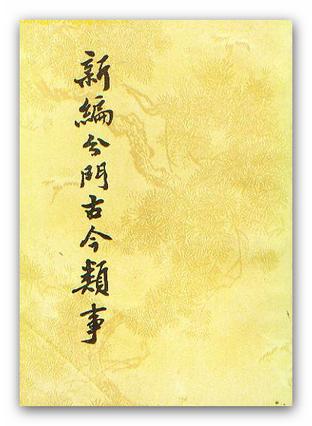 新編分門古今類事